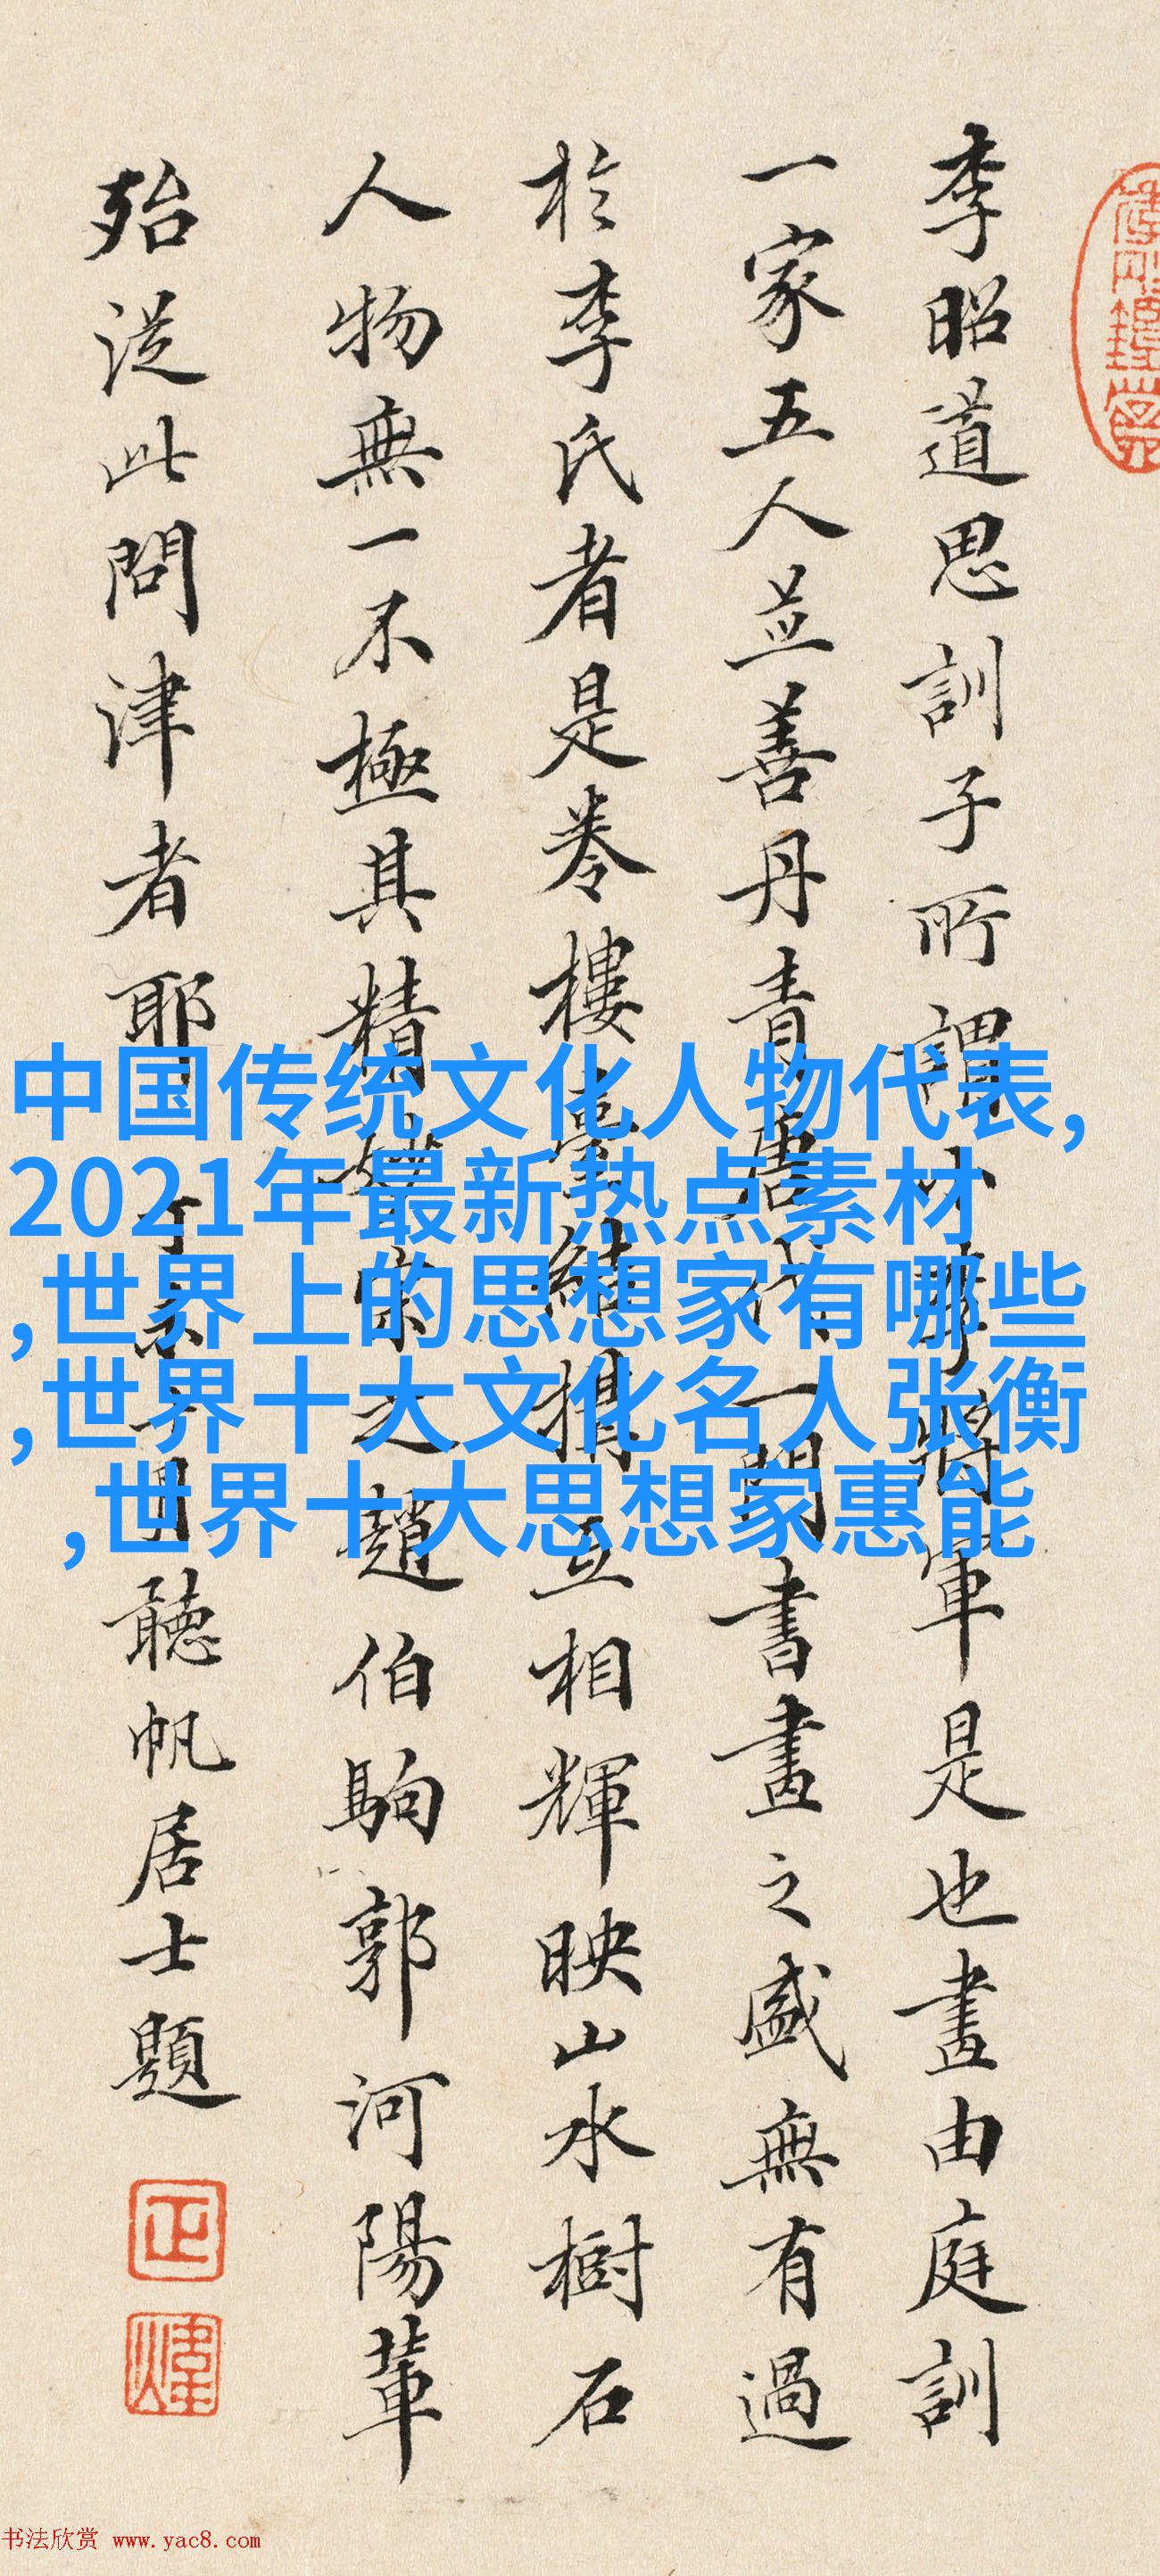 李昭道思訓子所謂小李將軍是也畫由庭訓
一家五人並善丹青唐代一門書畫之盛無有過
於李氏者是卷樓臺結構互相輝映山水樹石
人物無一不極其精妙宋之趙伯駒郭河陽輩
殆從此問津者耶
聽帆居士題
中国传统文化人物代表,
2021年最新热点素材
,世界上的思想家有哪些
,世界十大文化名人张衡
,世界十大思想家惠能
书法欣赏 www.yac8.com